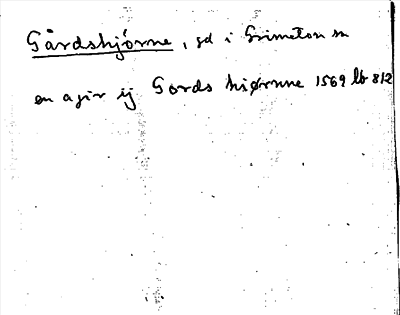 Gårdshjórne, gd i Grimeton sn
en agir ij Gords hiørnne 1569 lb 812